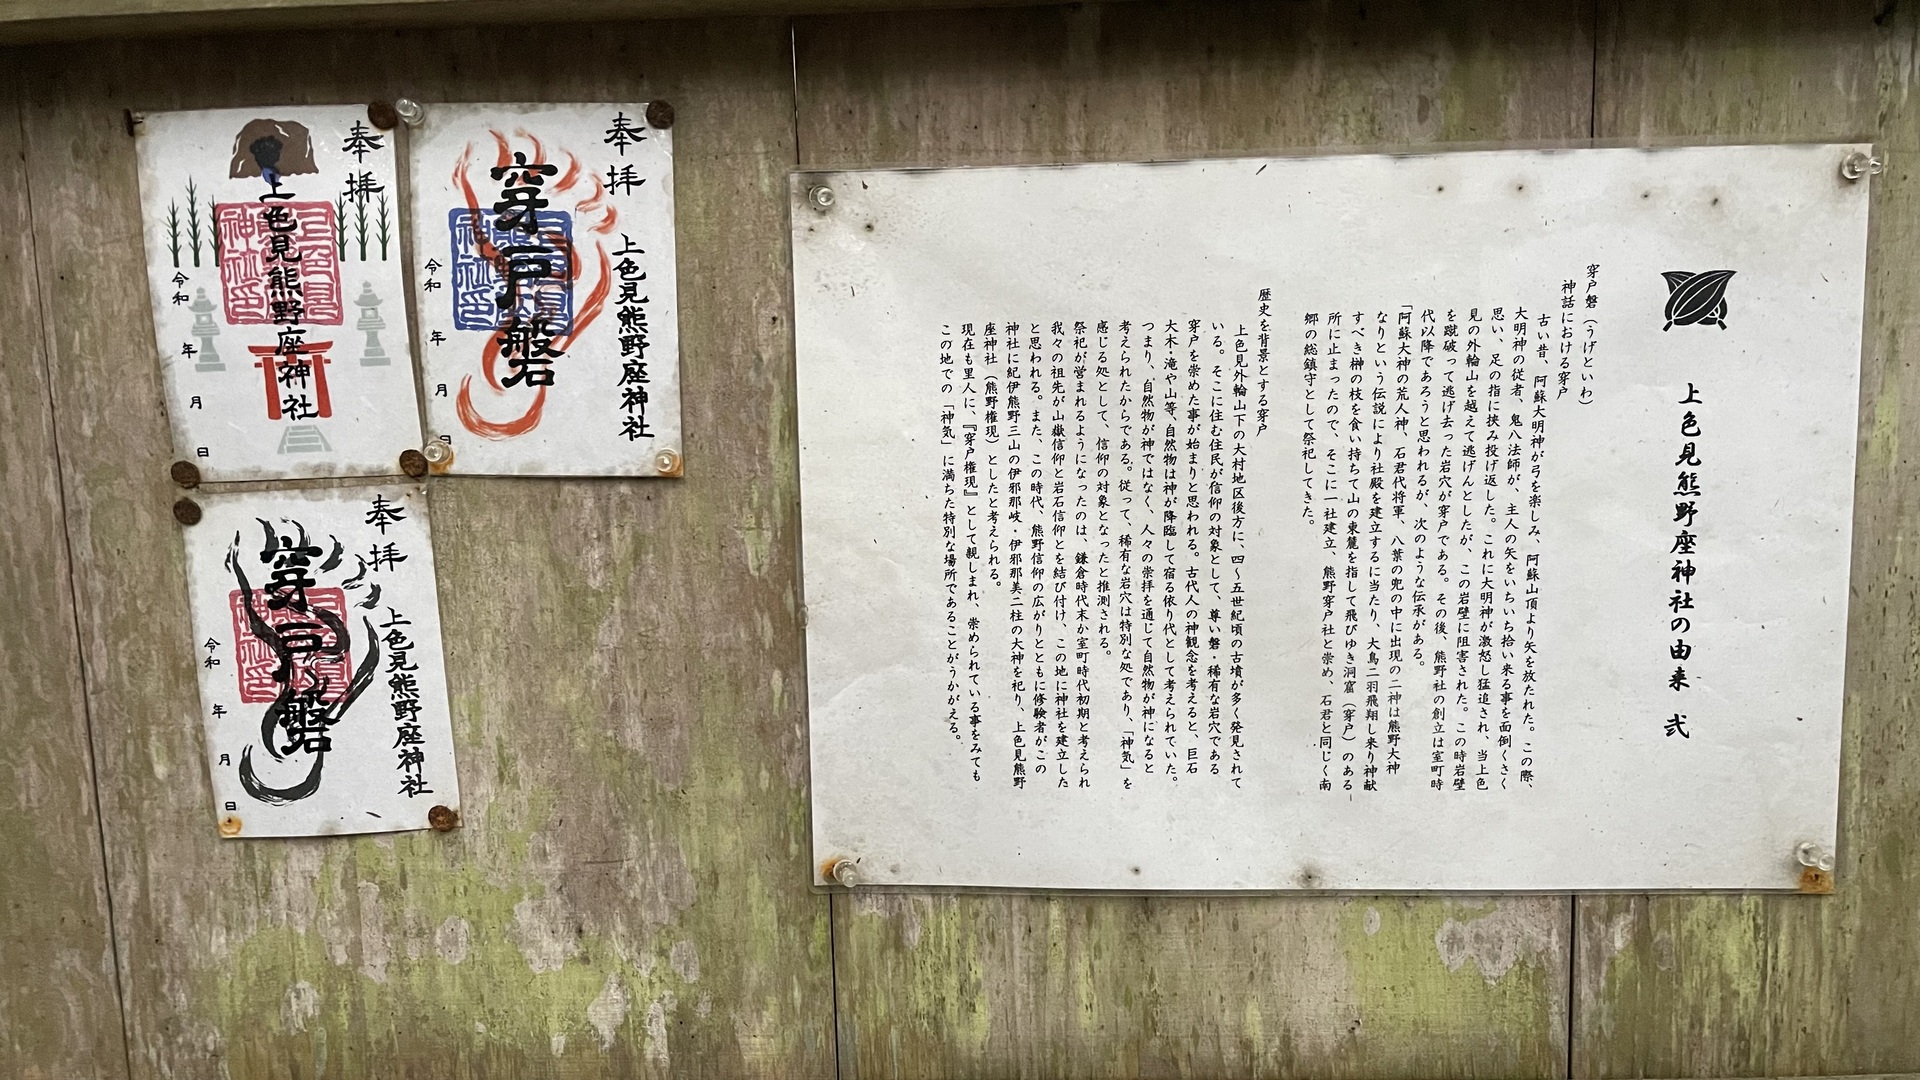 上色見熊野座神社の由来 弐
穿戸磐（うげといわ）
神話における穿戸
古い昔、阿蘇大明神が弓を楽しみ、阿蘇山頂より矢を放たれた。この際、
大明神の従者、鬼八法師が、主人の矢をいちいち拾い来る事を面倒くさく
思い、足の指に挟み投げ返した。これに大明神が激怒し猛追され、当上色
見の外輪山を越えて逃げんとしたが、この岩壁に阻害された。この時岩壁
を蹴破って逃げ去った岩穴が穿戸である。その後、熊野社の創立は室町時
代以降であろうと思われるが、次のような伝承がある。
「阿蘇大神の荒人神、石君代将軍、八葉の兜の中に出現の二神は熊野大神
なりという伝説により社殿を建立するに当たり、大鳥二羽飛翔し来り神献
すべき榊の枝を食い持ちて山の東麓を指して飛びゆき洞窟（穿戸）のある
所に止まったので、そこに一社建立、熊野穿戸社と崇め、石君と同じく南
郷の総鎮守として祭祀してきた。
歴史を背景とする穿戸
上色見外輪山下の大村地区後方に、四～五世紀頃の古墳が多く発見されて
いる。そこに住む住民が信仰の対象として、尊い磐・稀有な岩穴である
穿戸を崇めた事が始まりと思われる。古代人の神観念を考えると、巨石
大木・滝や山等、自然物は神が降臨して宿る依り代として考えられていた。
つまり、自然物が神ではなく、人々の崇拝を通じて自然物が神になると
考えられたからである。従って、稀有な岩穴は特別な処であり、「神気」を
感じる処として、信仰の対象となったと推測される。
祭祀が営まれるようになったのは、鎌倉時代末か室町時代初期と考えられ
我々の祖先が山嶽信仰と岩石信仰とを結び付け、この地に神社を建立した
と思われる。また、この時代、熊野信仰の広がりとともに修験者がこの
神社に紀伊熊野三山の伊邪那岐・伊邪那美二柱の大神を祀り、上色見熊野
座神社（熊野権現）としたと考えられる。
現在も里人に、『穿戸権現』として親しまれ、崇められている事をみても
この地での「神気」に満ちた特別な場所であることがうかがえる。
奉拝
上色見熊野座神社
穿戸磐
令和 年 月 日
奉拝
上色見熊野座神社
令和 年 月 日
奉拝
上色見熊野座神社
穿戸磐
令和 年 月 日